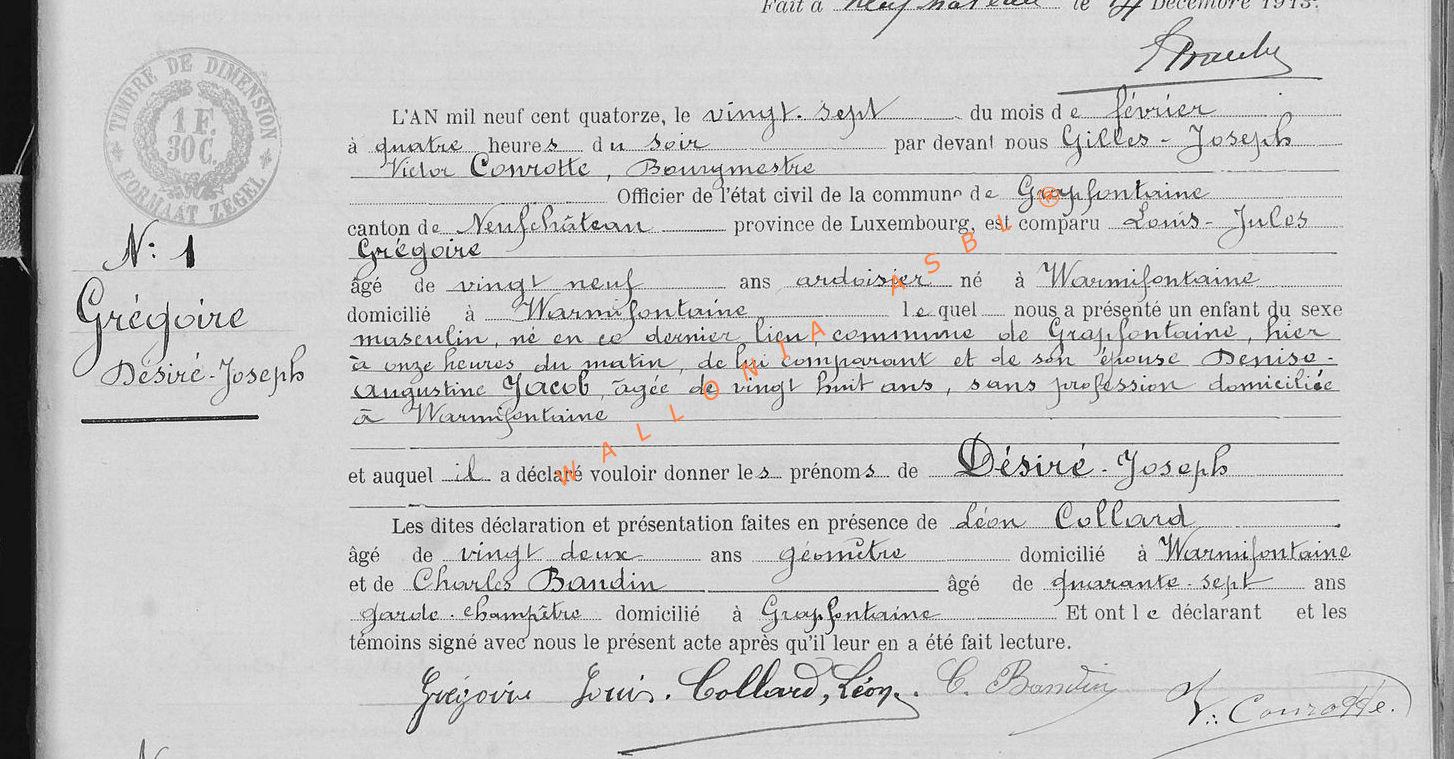 Fait à Neufchâteau le 14 Décembre 1913.
TIMBRE DE DIMENSION
1 F. 30 C.
FORMAAT ZEGEL
L'AN mil neuf cent quatorze, le vingt-sept du mois de février
à quatre heures du soir par devant nous Gilles-Joseph
Victor Conrotte, Bourgmestre
Officier de l'état civil de la commune de Grapfontaine
canton de Neufchâteau province de Luxembourg, est comparu Louis-Jules
Grégoire
âgé de vingt neuf ans ardoisier né à Warmifontaine
domicilié à Warmifontaine lequel nous a présenté un enfant du sexe
masculin, né en ce dernier lieu, commune de Grapfontaine, hier
à onze heures du matin, de lui comparant et de son épouse Denise-
Augustine Jacob, âgée de vingt huit ans, sans profession domiciliée
à Warmifontaine
et auquel il a déclaré vouloir donner les prénoms de Désiré-Joseph
Les dites déclaration et présentation faites en présence de Léon Collard
âgé de vingt deux ans géomètre domicilié à Warmifontaine
et de Charles Baudin âgé de quarante-sept ans
garde-champêtre domicilié à Grapfontaine Et ont le déclarant et les
témoins signé avec nous le présent acte après qu'il leur en a été fait lecture.
Grégoire Louis. Collard, Léon. C. Baudin V: Conrotte.
N: 1
Grégoire
Désiré-Joseph
WALLONIA ASBL ®